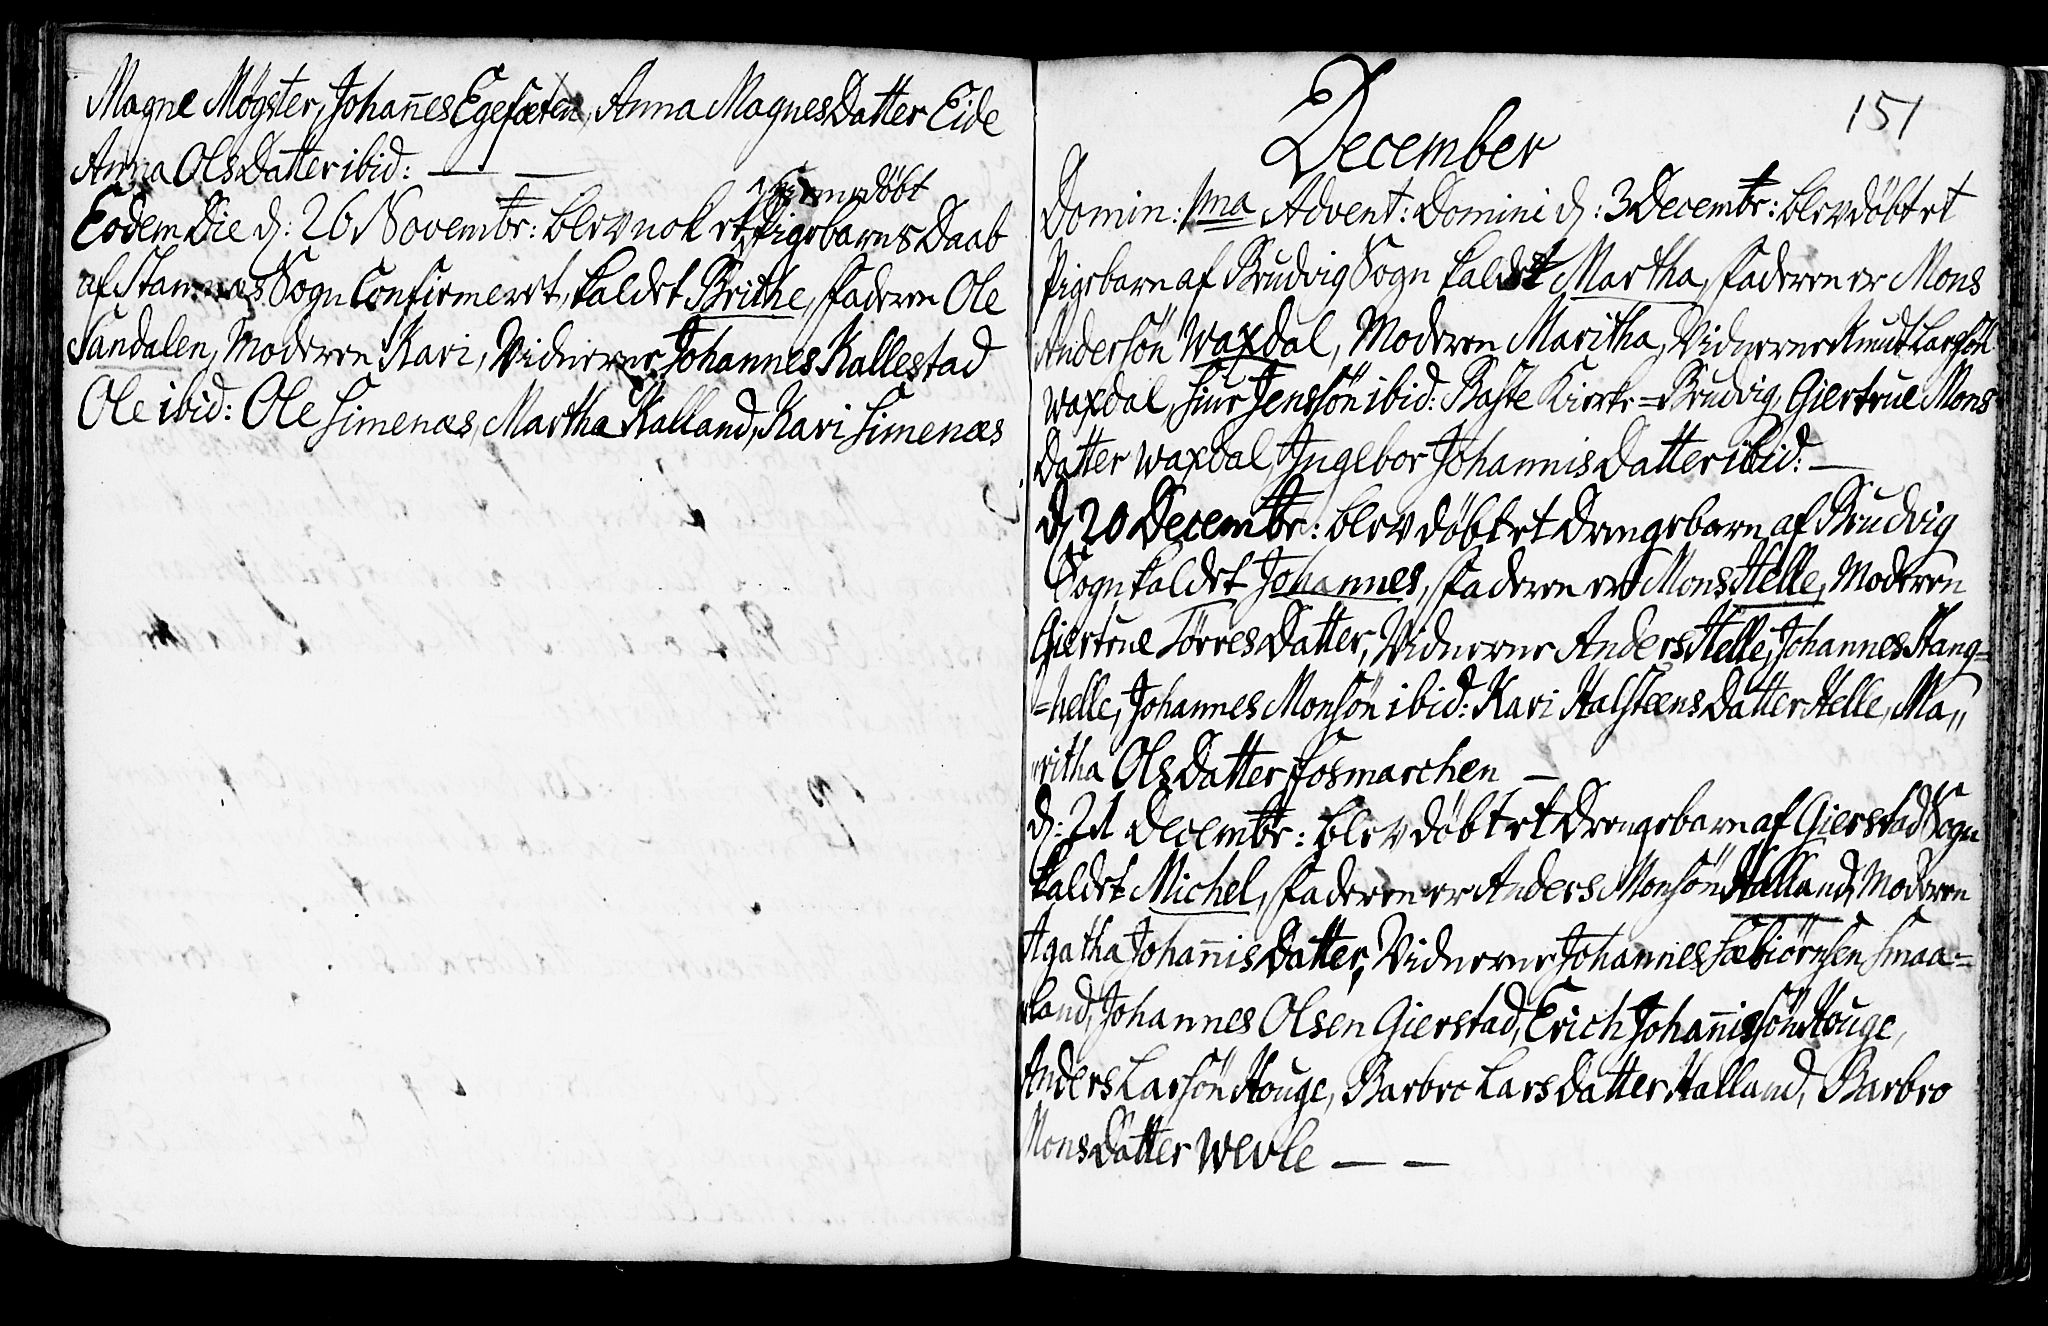 Magne Møgster, Johan̄es Egesæten, Anna Magnes Datter Eide
Anna Ols Datter ibid: — —
hiemmedøbt
Eodem Die d: 26 Novembr: blev nok et Pigebarns Daab
af Stamnæs Sogn Confirmeret, kaldet Brithe, Faderen Ole
Sandalen, Moderen Kari, Vidnerne Johannes Kallestad
Ole ibid: Ole Simenæs, Martha Kalland, Kari Simenæs
151
December
Domin: 1ma Advent: Domini d: 3 Decembr: blev døbt et
Pigebarn af Brudvig Sogn kaldet Martha, Faderen er Mons
Andersøn Waxdal, Moderen Maritha, Vidnerne Knud Larssøn
Waxdal, Siur Jenssøn ibid: Baste Kirke=Brudvig, Giertrue Mons
Datter Waxdal, Ingebor Johannis Datter ibid: —
d 20 Decembr: blev døbt et Drengebarn af Brudvig
Sogn kaldet Johannes, Faderen er Mons Helle, Moderen
Giertrue Tørres Datter, Vidnerne Anders Helle, Johannes Stang=
=helle, Johannes Monsøn ibid: Kari Halsteens Datter Helle, Ma,,
ritha Ols Datter Fosmarchen —
d: 21 Decembr: blev døbt et Drengebarn af Gierstad Sogn
kaldet Michel, Faderen er Anders Monsøn Halland, Moderen
Agatha Johan̄is Datter, Vidnerne Johannes Sæbiørnsen Smaa=
land, Johannes Olsen Gierstad, Erich Johan̄issøn Houge,
Anders Larsøn Houge, Barbro Lars Datter Halland, Barbro
Mons Datter Wevle — —